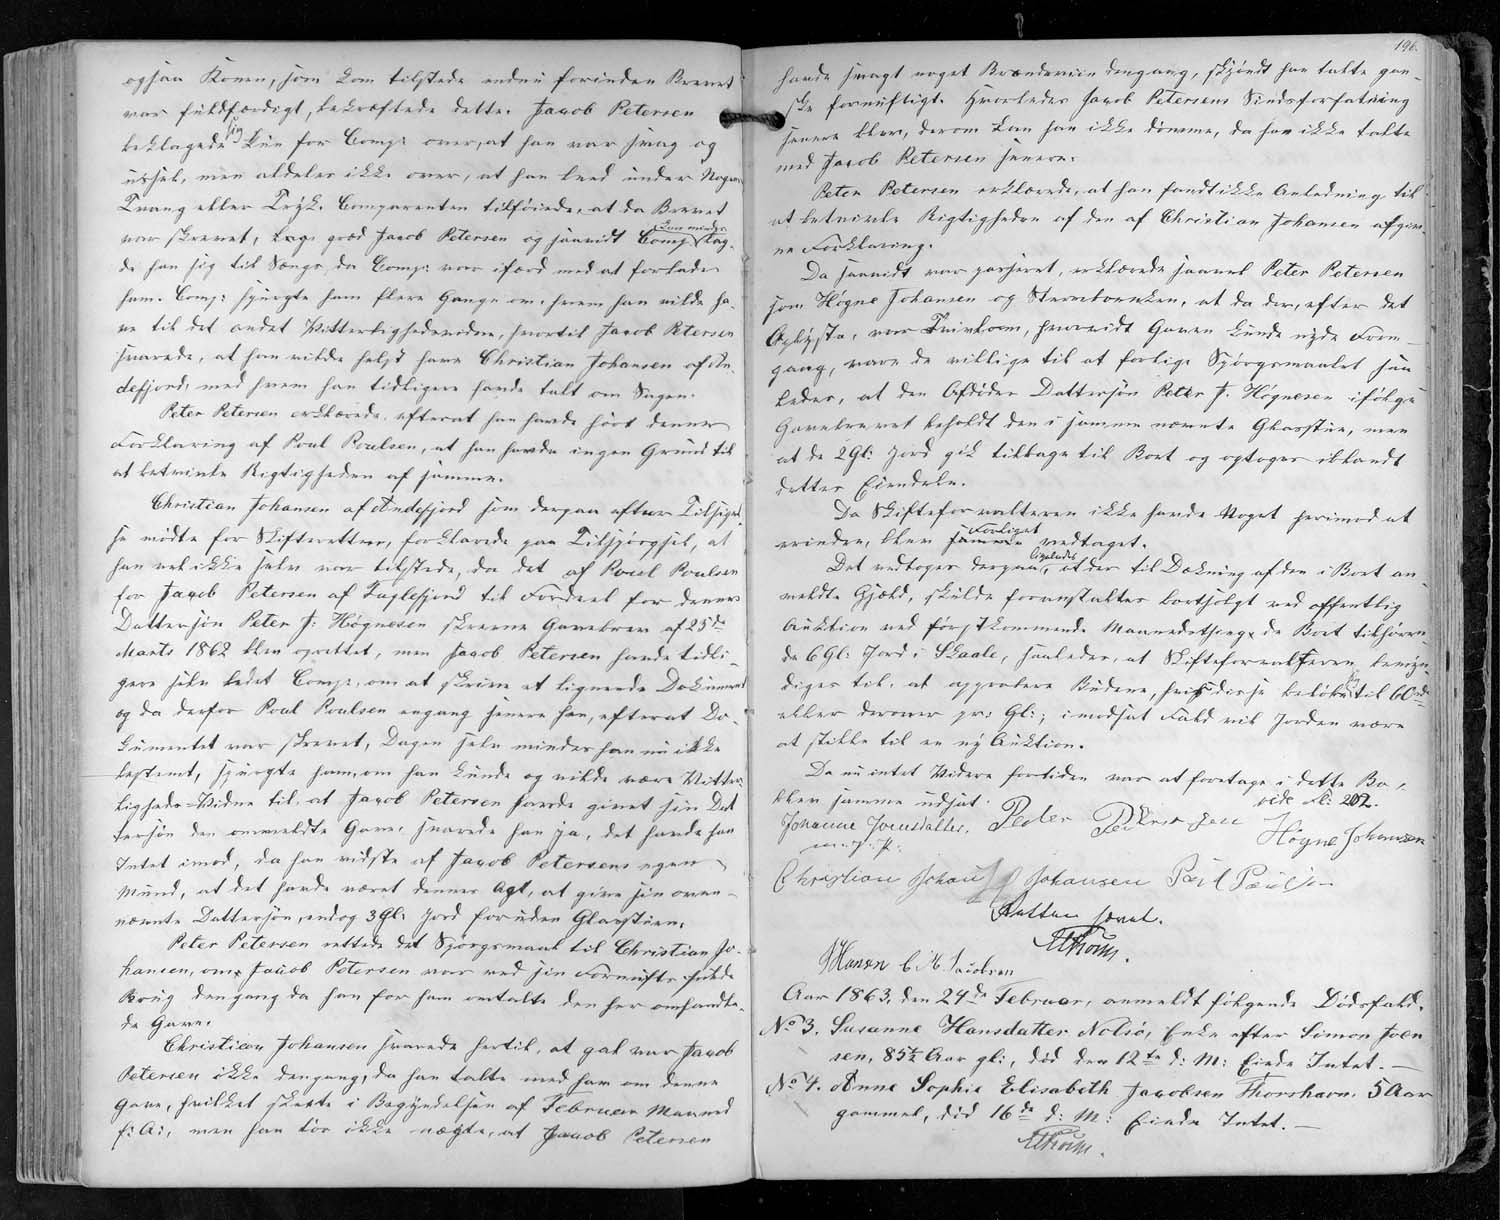 ogsaa Konen, som kom tilstede endnu forinden Brevet
var fuldfærdigt, bekræftede dette. Jacob Petersen
beklagede sig kun for Comp: over, at han var svag og
ussel, men aldeles ikke over, at han leed under Nogen
Tvang eller Tryk. Comparenten tilføiede, at da Brevet
var skrevet, græd Jacob Petersen og saavidt Comp: kan mindes lag-
de han sig til Sengs, da Comp: var ifærd med at forlade
ham. Comp: spurgte ham flere Gange om, hvem han vilde ha-
ve til det andet Vitterlighedsvidne, hvortil Jacob Petersen
svarede, at han vilde helst have Christian Johansen af An-
defjord, med hvem han tidligere havde talt om Sagen.
Peter Petersen erklærede, efterat han havde hørt denne
Forklaring af Poul Poulsen, at han havde ingen Grund til
at betvivle Rigtigheden af samme.
Christian Johansen af Andefjord som derpaa efter Tilsigel-
se mødte for Skifteretten, forklarede paa Tilspørgsel, at
han vel ikke selv var tilstede, da det af Poul Poulsen
for Jacob Petersen af Fuglefjord til Fordeel for dennes
Dattersøn Peter J: Høgnesen skrevne Gavebrev af 25de
Marts 1862 blev oprettet, men Jacob Petersen havde tidli-
gere selv bedet Comp: om at skrive et lignende Dokument
og da derfor Poul Poulsen engang senere hen, efterat Do-
kumentet var skrevet, Dagen selv minder han nu ikke
bestemt, spurgte ham, om han kunde og vilde være Vitter-
ligheds-Vidne til, at Jacob Petersen havde givet sin Dat-
tersøn den anmeldte Gave, svarede han ja, det havde han
Intet imod, da han vidste af Jacob Petersens egen
Mund, at det havde været dennes Agt, at give sin oven-
nævnte Dattersøn, endog 3 Gl: Jord foruden Glasstuen.
Peter Petersen rettede det Spørgsmaal til Christian Jo-
hansen, om Jacob Petersen var ved sin Fornufts fulde
Brug dengang da han for ham omtalte den her omhandle-
de Gave.
Christian Johansen svarede hertil, at gal var Jacob
Petersen ikke dengang, da han talte med ham om denne
Gave, hvilket skete i Begyndelsen af Februar Maaned
f: A:, men han tør ikke nægte, at Jacob Petersen
196.
havde smagt noget Brændeviin dengang, skjøndt han talte gan-
ske fornuftigt. Hvorledes Jacob Petersens Sindsforfatning
senere blev, derom kan han ikke dømme, da han ikke talte
med Jacob Petersen senere.
Peter Petersen erklærede, at han fandt ikke Anledning til
at betvivle Rigtigheden af den af Christian Johansen afgiv-
ne Forklaring.
Da saavidt var passeret, erklærede saavel Peter Petersen
som Høgne Johansen og Sterbeenken, at da der, efter det
Oplyste, var Tvivl om, hvorvidt Gaven kunde nyde Frem-
gang, vare de villige til at forlige Spørgsmaalet saa-
ledes, at den Afdødes Dattersøn Peter J. Høgnesen ifølge
Gavebrevet beholdt den i samme nævnte Glasstue, men
at de 2 Gl: Jord gik tilbage til Boet og optoges iblandt
dettes Eiendele.
Da Skifteforvalteren ikke havde Noget herimod at
erindre, blev Forliget vedtaget.
Det vedtoges derpaa ligeledes, at der til Dækning af den i Boet an-
meldte Gjæld, skulde foranstaltes bortsolgt ved offentlig
Auktion ved førstkommende Maanedsthing de Boet tilhøren-
de 6 Gl: Jord i Skaale, saaledes, at Skifteforvalteren bemyn-
diges til, at approbere Budene, hvis disse beløbe sig til 60 rd
eller derover pr: Gl:; i modsat Fald vil Jorden være
at stille til en ny Auktion.
Da nu intet Videre fortiden var at foretage i dette Bo,
blev samme udsat. vide fl: 202.
Johanne Joensdatter. Peder Pedersen Høgne Johansen
m. f. P.
Christian Johan Johansen Pævl Pævlsen
Retten hævet.
HMüller
Hansen C M Jacobsen
Aar 1863, den 24de Februar, anmeldt følgende Dødsfald.
No 3. Susanne Hansdatter Nolsø, Enke efter Simon Joen-
sen, 85½ Aar gl:, død den 12te d: M: Eiede Intet. —
No 4. Anne Sophie Elisabeth Jacobsen Thorshavn, 5 Aar
gammel, død 16de d: M: Eiede Intet. —